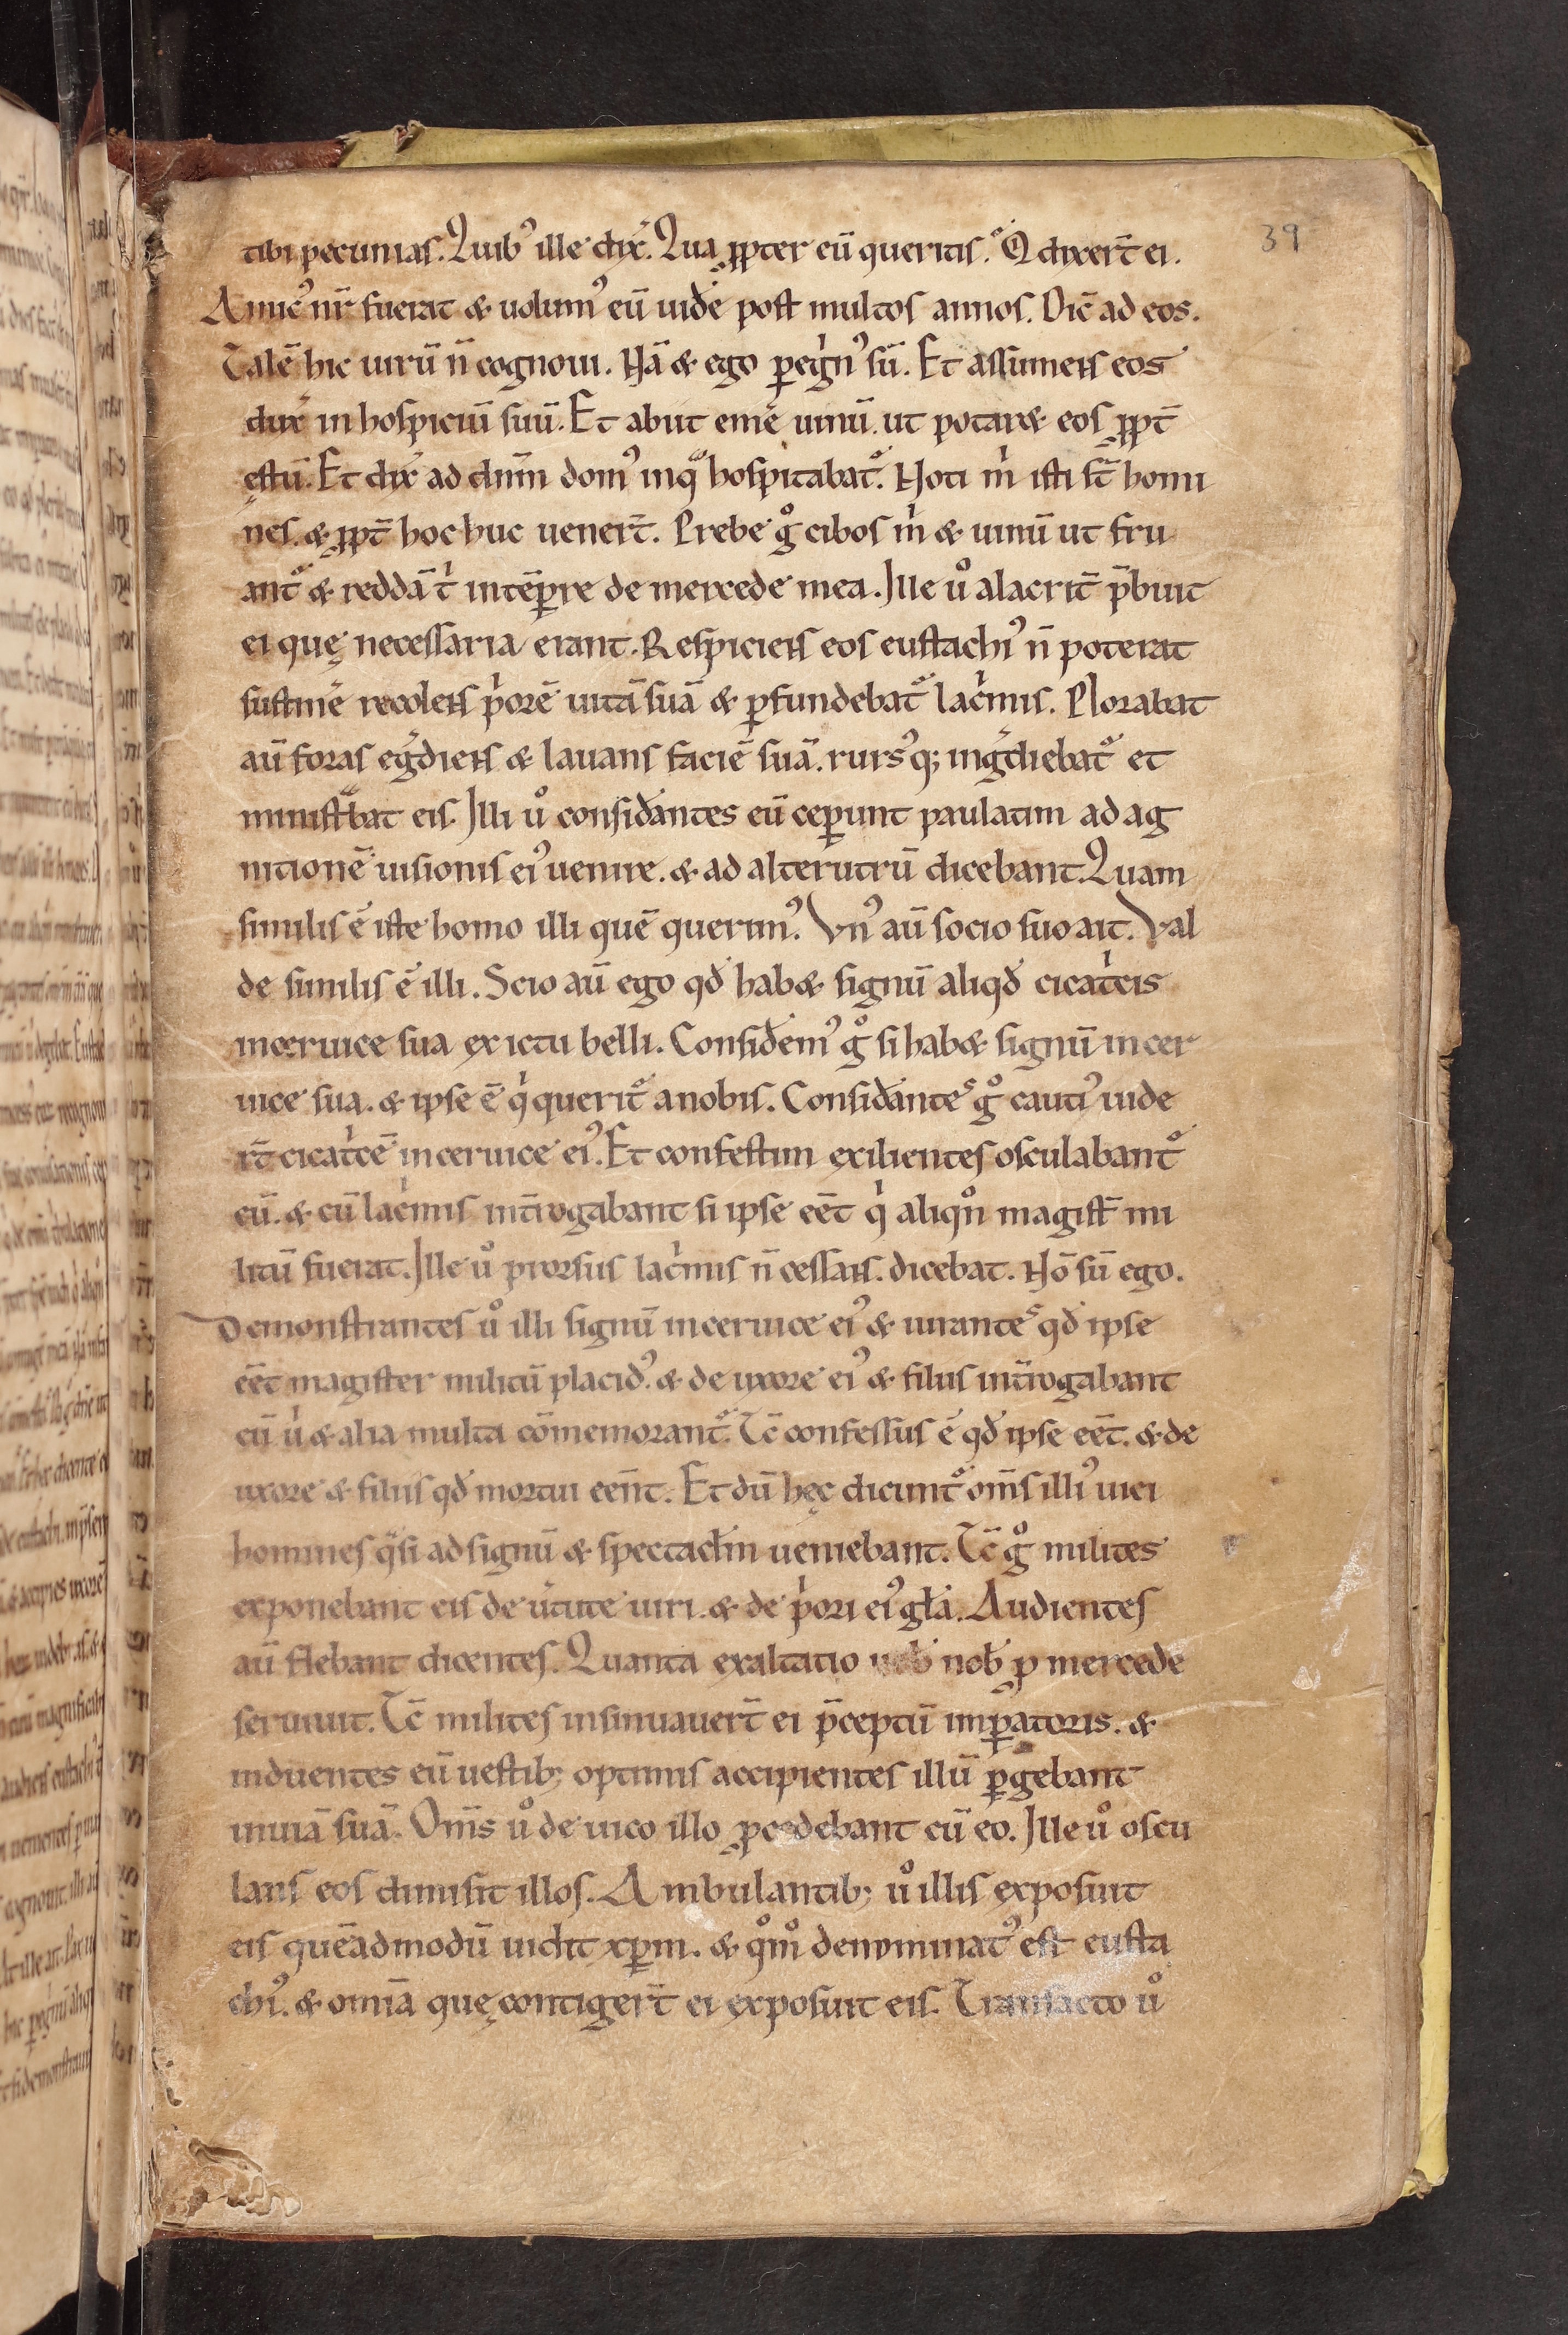 39
tibi pecunias. Quibꝰ ille dix̄. Qua ꝓpter eū queritis. Qͥ dixert̄ ei.
Amicꝰ nr̄ fuerat & uolumꝰ eū uidē post multos annos. Dic̄ ad eos.
Talē hic uirū n̄ cognoui. Nā & ego peͥgͥnꝰ sū. Et assumens eos
dux̄ in hospiciū suū. Et abiit emē uinū. ut potaret eos ꝓpt̄
ęstū. Et dix̄ ad dn̄m domꝰ in qͣ hospitabat᷑. Noti m̊ isti st̄ homi
nes. & ꝓpt̄ hoc huc uenert̄. Prebe gͦ cibos m̊ & uinū ut fru
ant᷑ & reddā tͥ intēꝑre de mercede mea. Ille uͦ alacrit̄ p̄buit
ei quę necessaria erant. Respiciens eos eustachiꝰ n̄ poterat
sustinē recolens pͥorē uitā suā & ꝑfundebat᷑ lacͥmis. Plorabat
aū foras egͤdiens & lauans faciē suā. rursꝰq; ingͤdiebat᷑ et
ministͣbat eis. Illi uͦ considāntes eū ceꝑunt paulatim ad ag
nitionē uisionis eiꝰ uenire. & ad alterutrū dicebant. Quam
similis ē iste homo illi quē querimꝰ. Vnꝰ aū socio suo ait. Val
de similis ē illi. Scio aū ego qd̄ habet signū aliqd̄ cicatͥcis
in ceruice sua ex ictu belli. Considemꝰ gͦ si habet signū in cer
uice sua. & ipse ē qͥ querit᷑ a nobis. Considāntes gͦ cautiꝰ uide
rt̄ cicatͥcē in ceruice eiꝰ. Et confestim exilientes osculabant᷑
eū. & cū lacͥmis int̄rogabant si ipse eēt qͥ aliqn̊ magist̄ mi
litū fuerat. Ille uͦ prorsus lacͥmis n̄ cessans. dicebat. Nō sū ego.
Demonstrantes uͦ illi signū in ceruice eiꝰ & iurantes qd̄ ipse
eēt magister militū placidꝰ. & de uxore eiꝰ & filiis int̄rogabant
eū uͥ & alia multa cōmemorant᷑. Tc̄ confessus ē qd̄ ipse eēt. & de
uxore & filiis qd̄ mortui eēnt. Et dū hęc dicunt᷑ om̄s illiꝰ uici
homines qͣsi ad signū & spectaclm̄ ueniebant. Tc̄ gͦ milites
exponebant eis de uͥtute uiri. & de pͥori eiꝰ gła. Audientes
aū flebant dicentes. Quanta exaltatio uirͥ nob̄ ꝓ mercede
seruiuit. Tc̄ milites insinuauert̄ ei p̄ceptū imꝑatoris. &
induentes eū uestib; optimis accipientes illū ꝑgebant
in uiā suā. Om̄s uͦ de uico illo ꝓcedebant cū eo. Ille uͦ oscu
lans eos dimisit illos. Ambulantib; uͦ illis exposuit
eis quēadmodū uidit xꝑm. & qͦmͦ denominatꝰ est eusta
chiꝰ. & omīa quę contigert̄ ei exposuit eis. Transacto uͦ